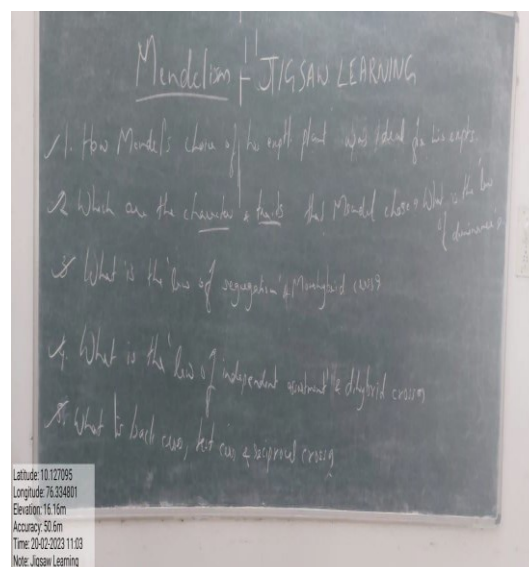 Mendelism - JIGSAW LEARNING
1. How Mendel's choice of his exptl plant was ideal for his expts.
2. Which are the character & traits that Mendel chose & What is the 'law
of dominance'?
3. What is the 'law of segregation' & Monohybrid cross?
4. What is the 'law of independent assortment' & dihybrid crosses
5. What is back cross, test cross & reciprocal crossing
Latitude: 10.127095
Longitude: 76.334801
Elevation: 16.16m
Accuracy: 50.6m
Time: 20-02-2023 11:03
Note: Jigsaw Learning